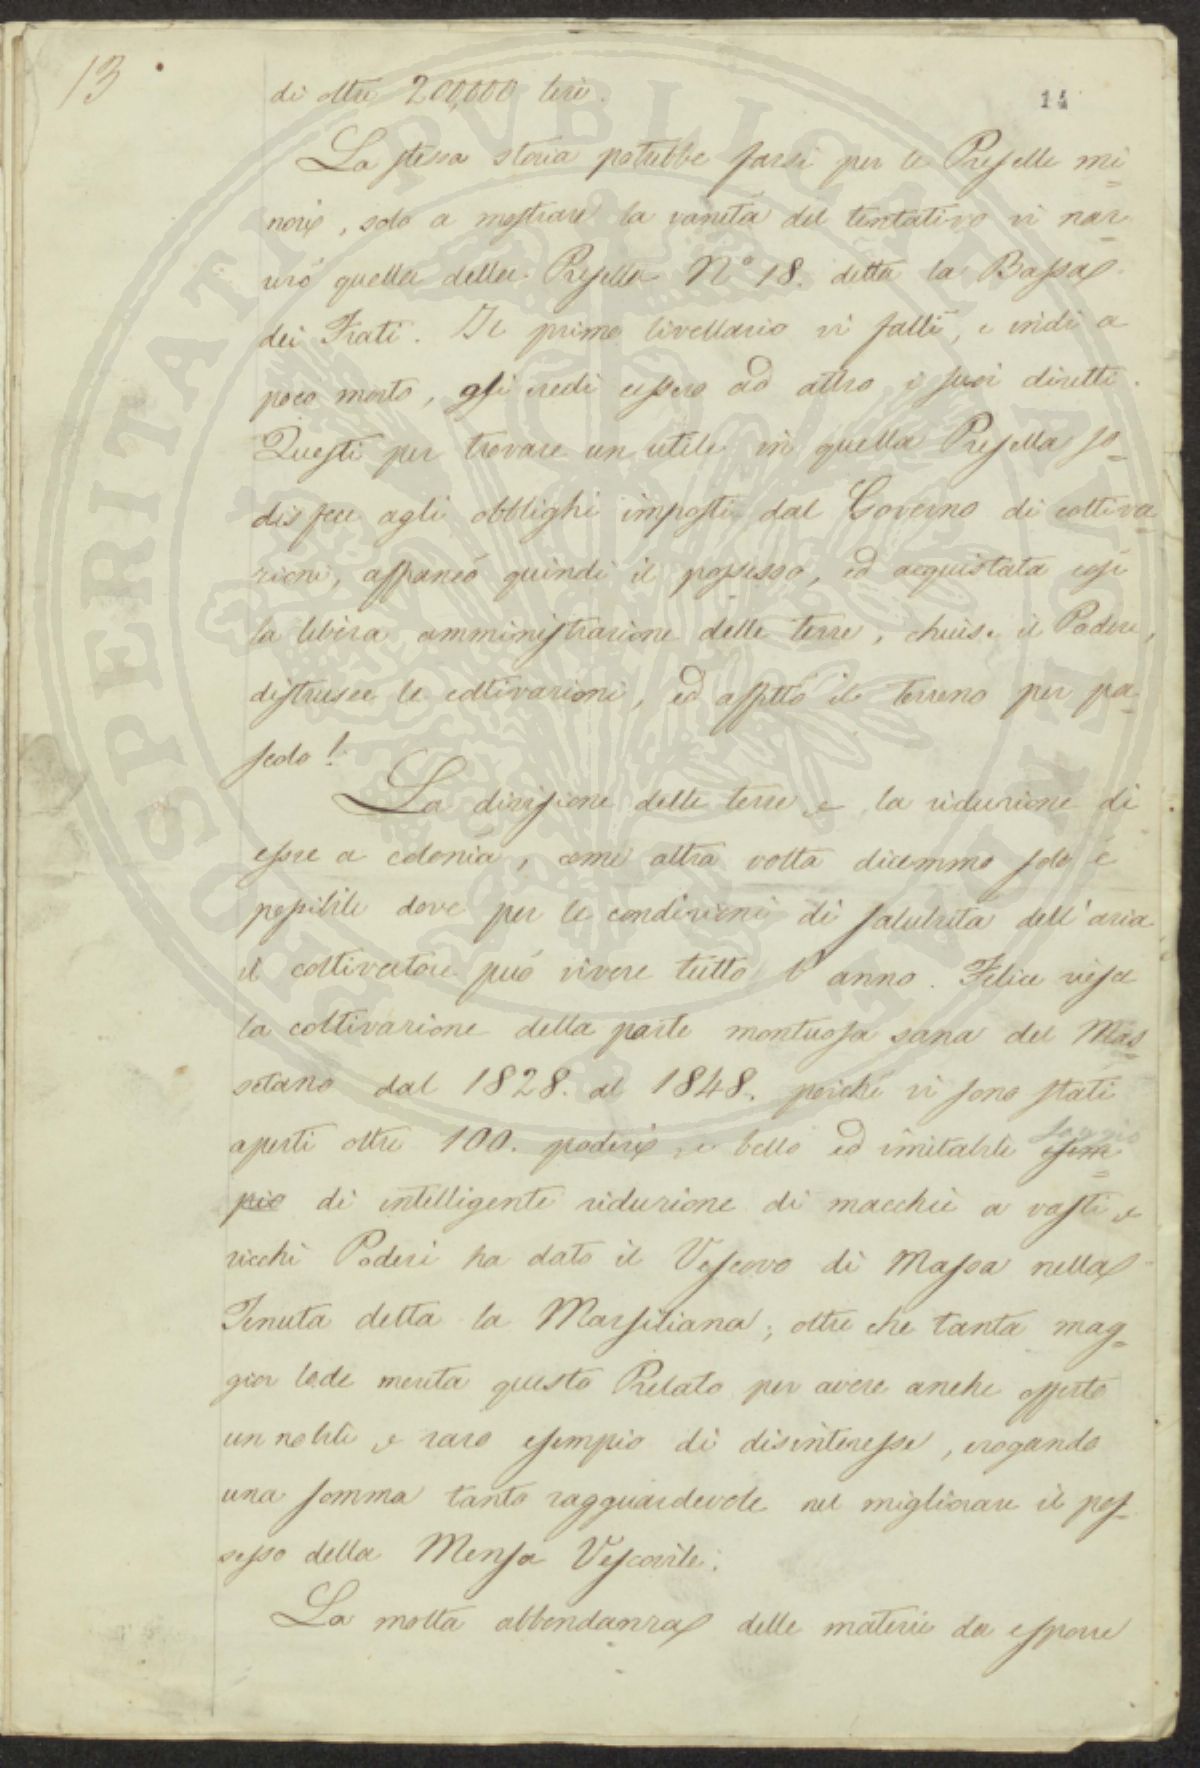 13
14
di oltre 200,000 lire.
La stessa storia potrebbe farsi per le Preselle mi=
nori, solo a mostrare la vanità del tentativo vi nar=
rerò quella della Presella N.° 18. detta la Bassa
dei Frati. Il primo livellario vi fallì, e indi a
poco morto, gli eredi cessero ad altro i suoi diretti.
Questi per trovare un utile in quella Presella so=
disfece agli obblighi imposti dal Governo di coltiva=
zioni, affrancò quindi il possesso, ed acquistata così
la libera amministrazione delle terre, chiuse il Podere,
distrusse le coltivazioni, ed affittò il terreno per pa=
scolo!
La divisione delle terre, e la riduzione di
esse a colonìa, come altra volta dicemmo solo è
possibile dove per le condizioni di salubrità dell'aria
il coltivatore può vivere tutto l'anno. Felice riesce
la coltivazione della parte montuosa sana del Mas=
setano dal 1828. al 1848. poiché vi sono stati
aperti oltre 100. poderi, e bello ed imitabile esem=
saggio
pio di intelligente riduzione di macchie a vasti e
ricchi Poderi ha dato il Vescovo di Massa nella
Tenuta detta la Marsiliana; oltre che tanta mag=
gior lode merita questo Prelato per avere anche offerto
un nobile e raro esempio di disinteresse, erogando
una somma tanto ragguardevole nel migliorare il pos=
sesso della Mensa Vescovile.
La molta abbondanza delle materie da esporre